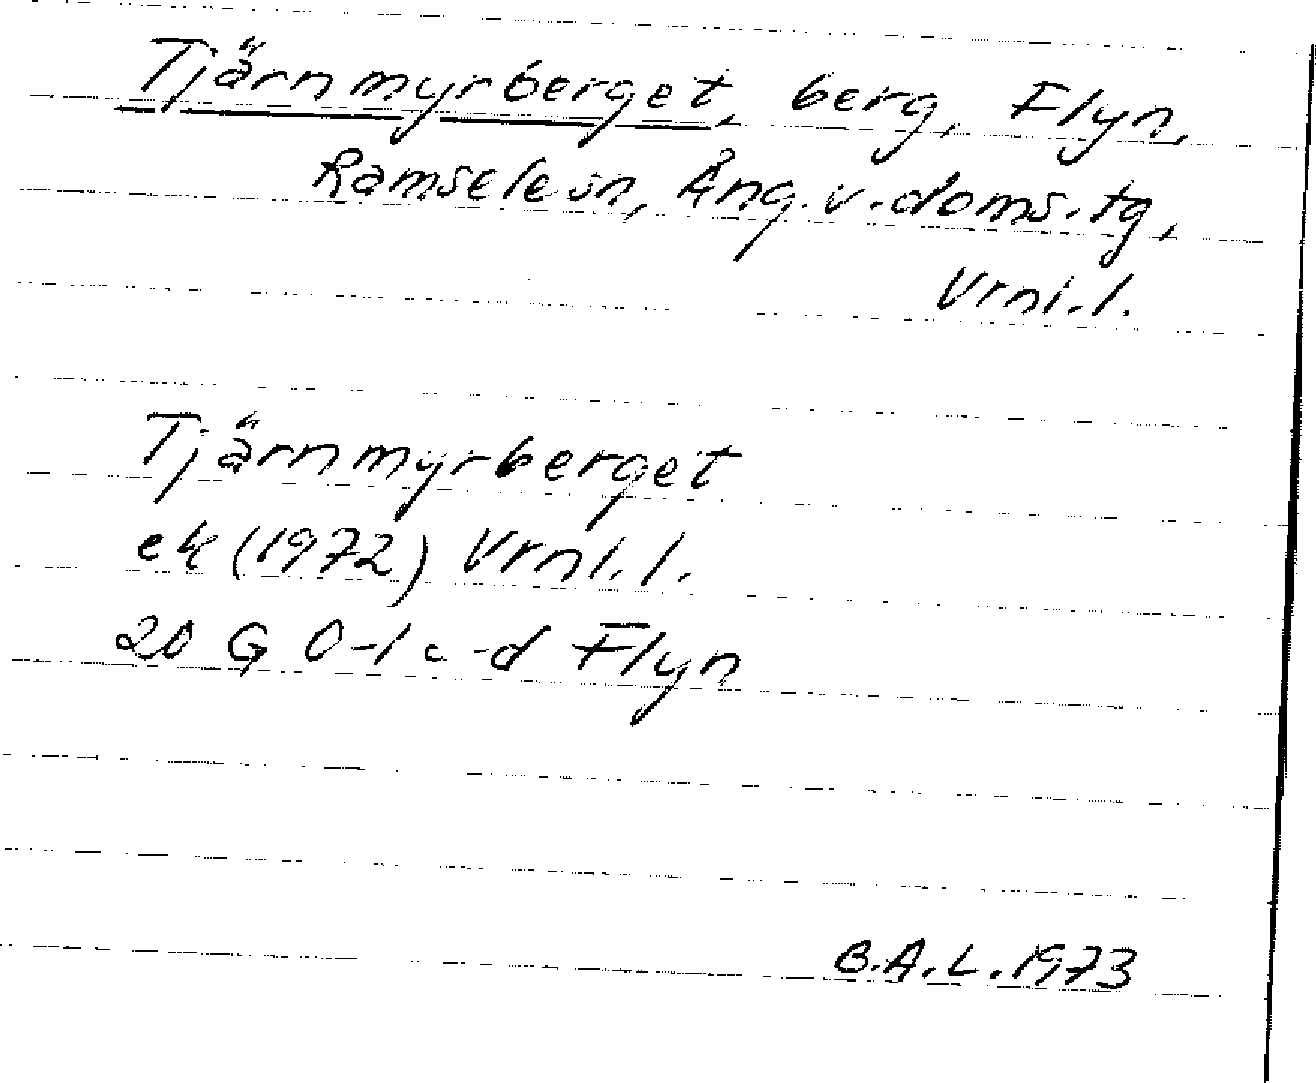 Tjärnmyrberget, berg, Flyn,
Ramsele sn, Ång. v. doms. tg,
Vrnl. l.
Tjärnmyrberget
ek (1972) Vrnl. l.
20 G 0-1 c-d Flyn
B.A.L. 1973